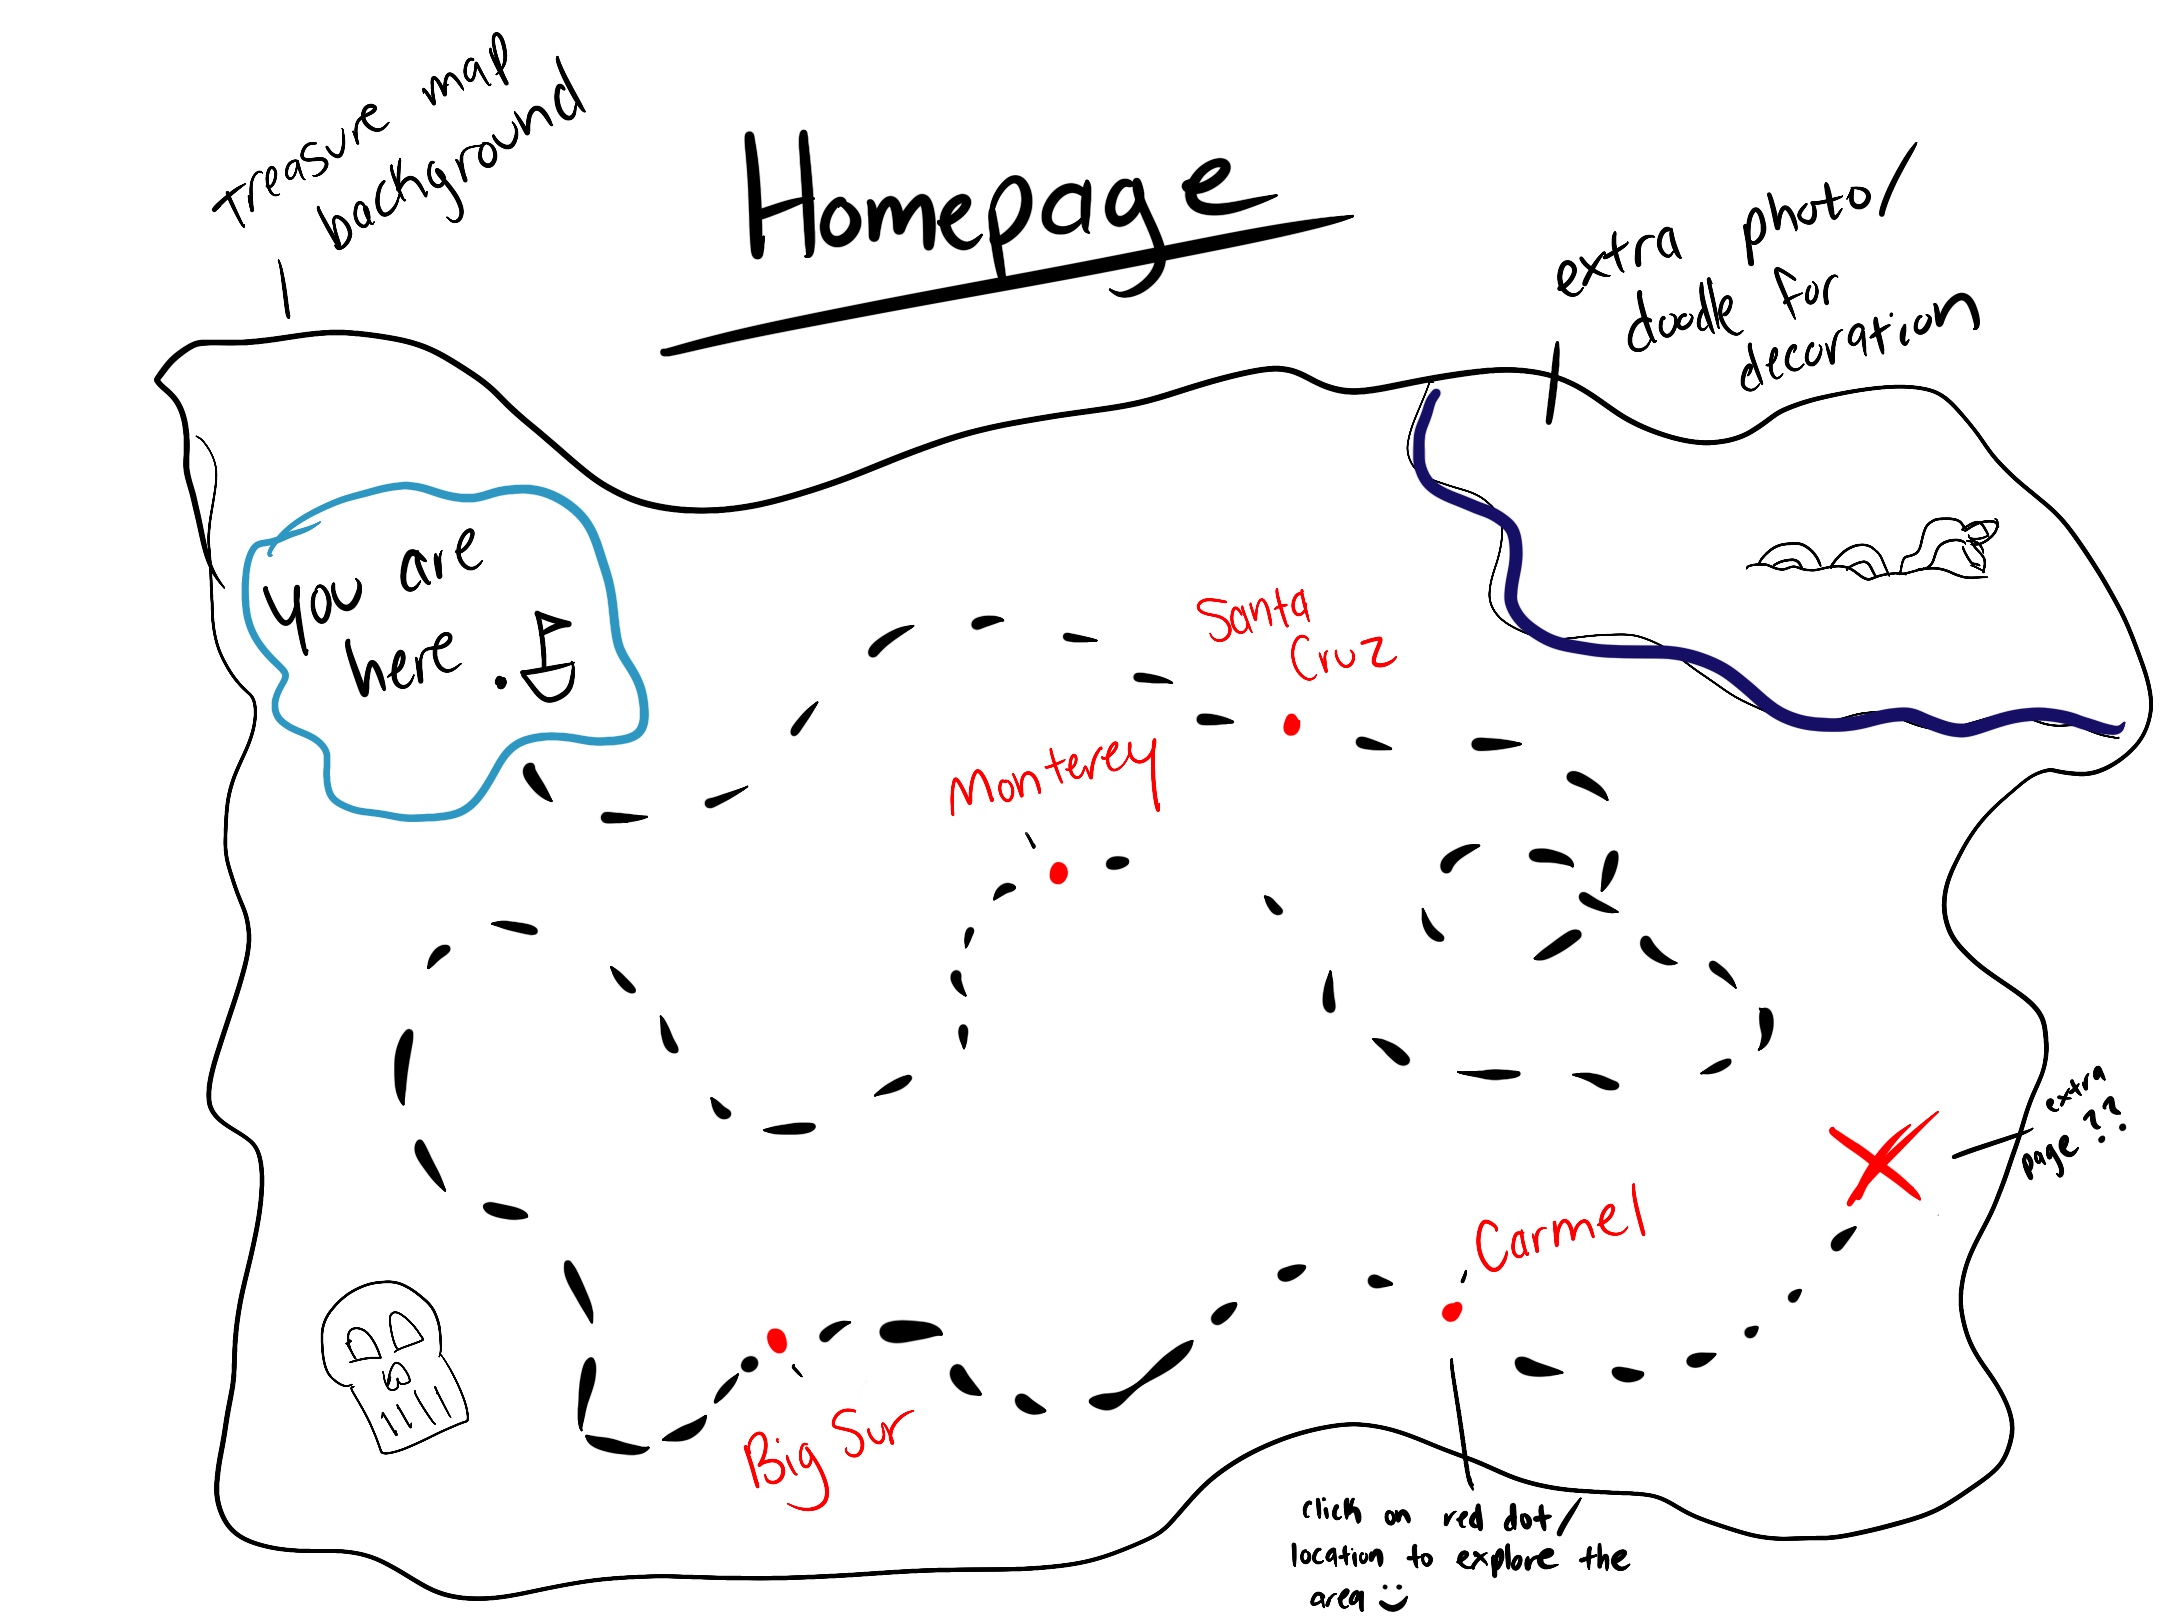 Treasure map
background
Homepage
extra photo/
doodle for
decoration
you are
here
Santa
Cruz
Monterey
extra
page??
Carmel
Big Sur
click on red dot/
location to explore the
area :)